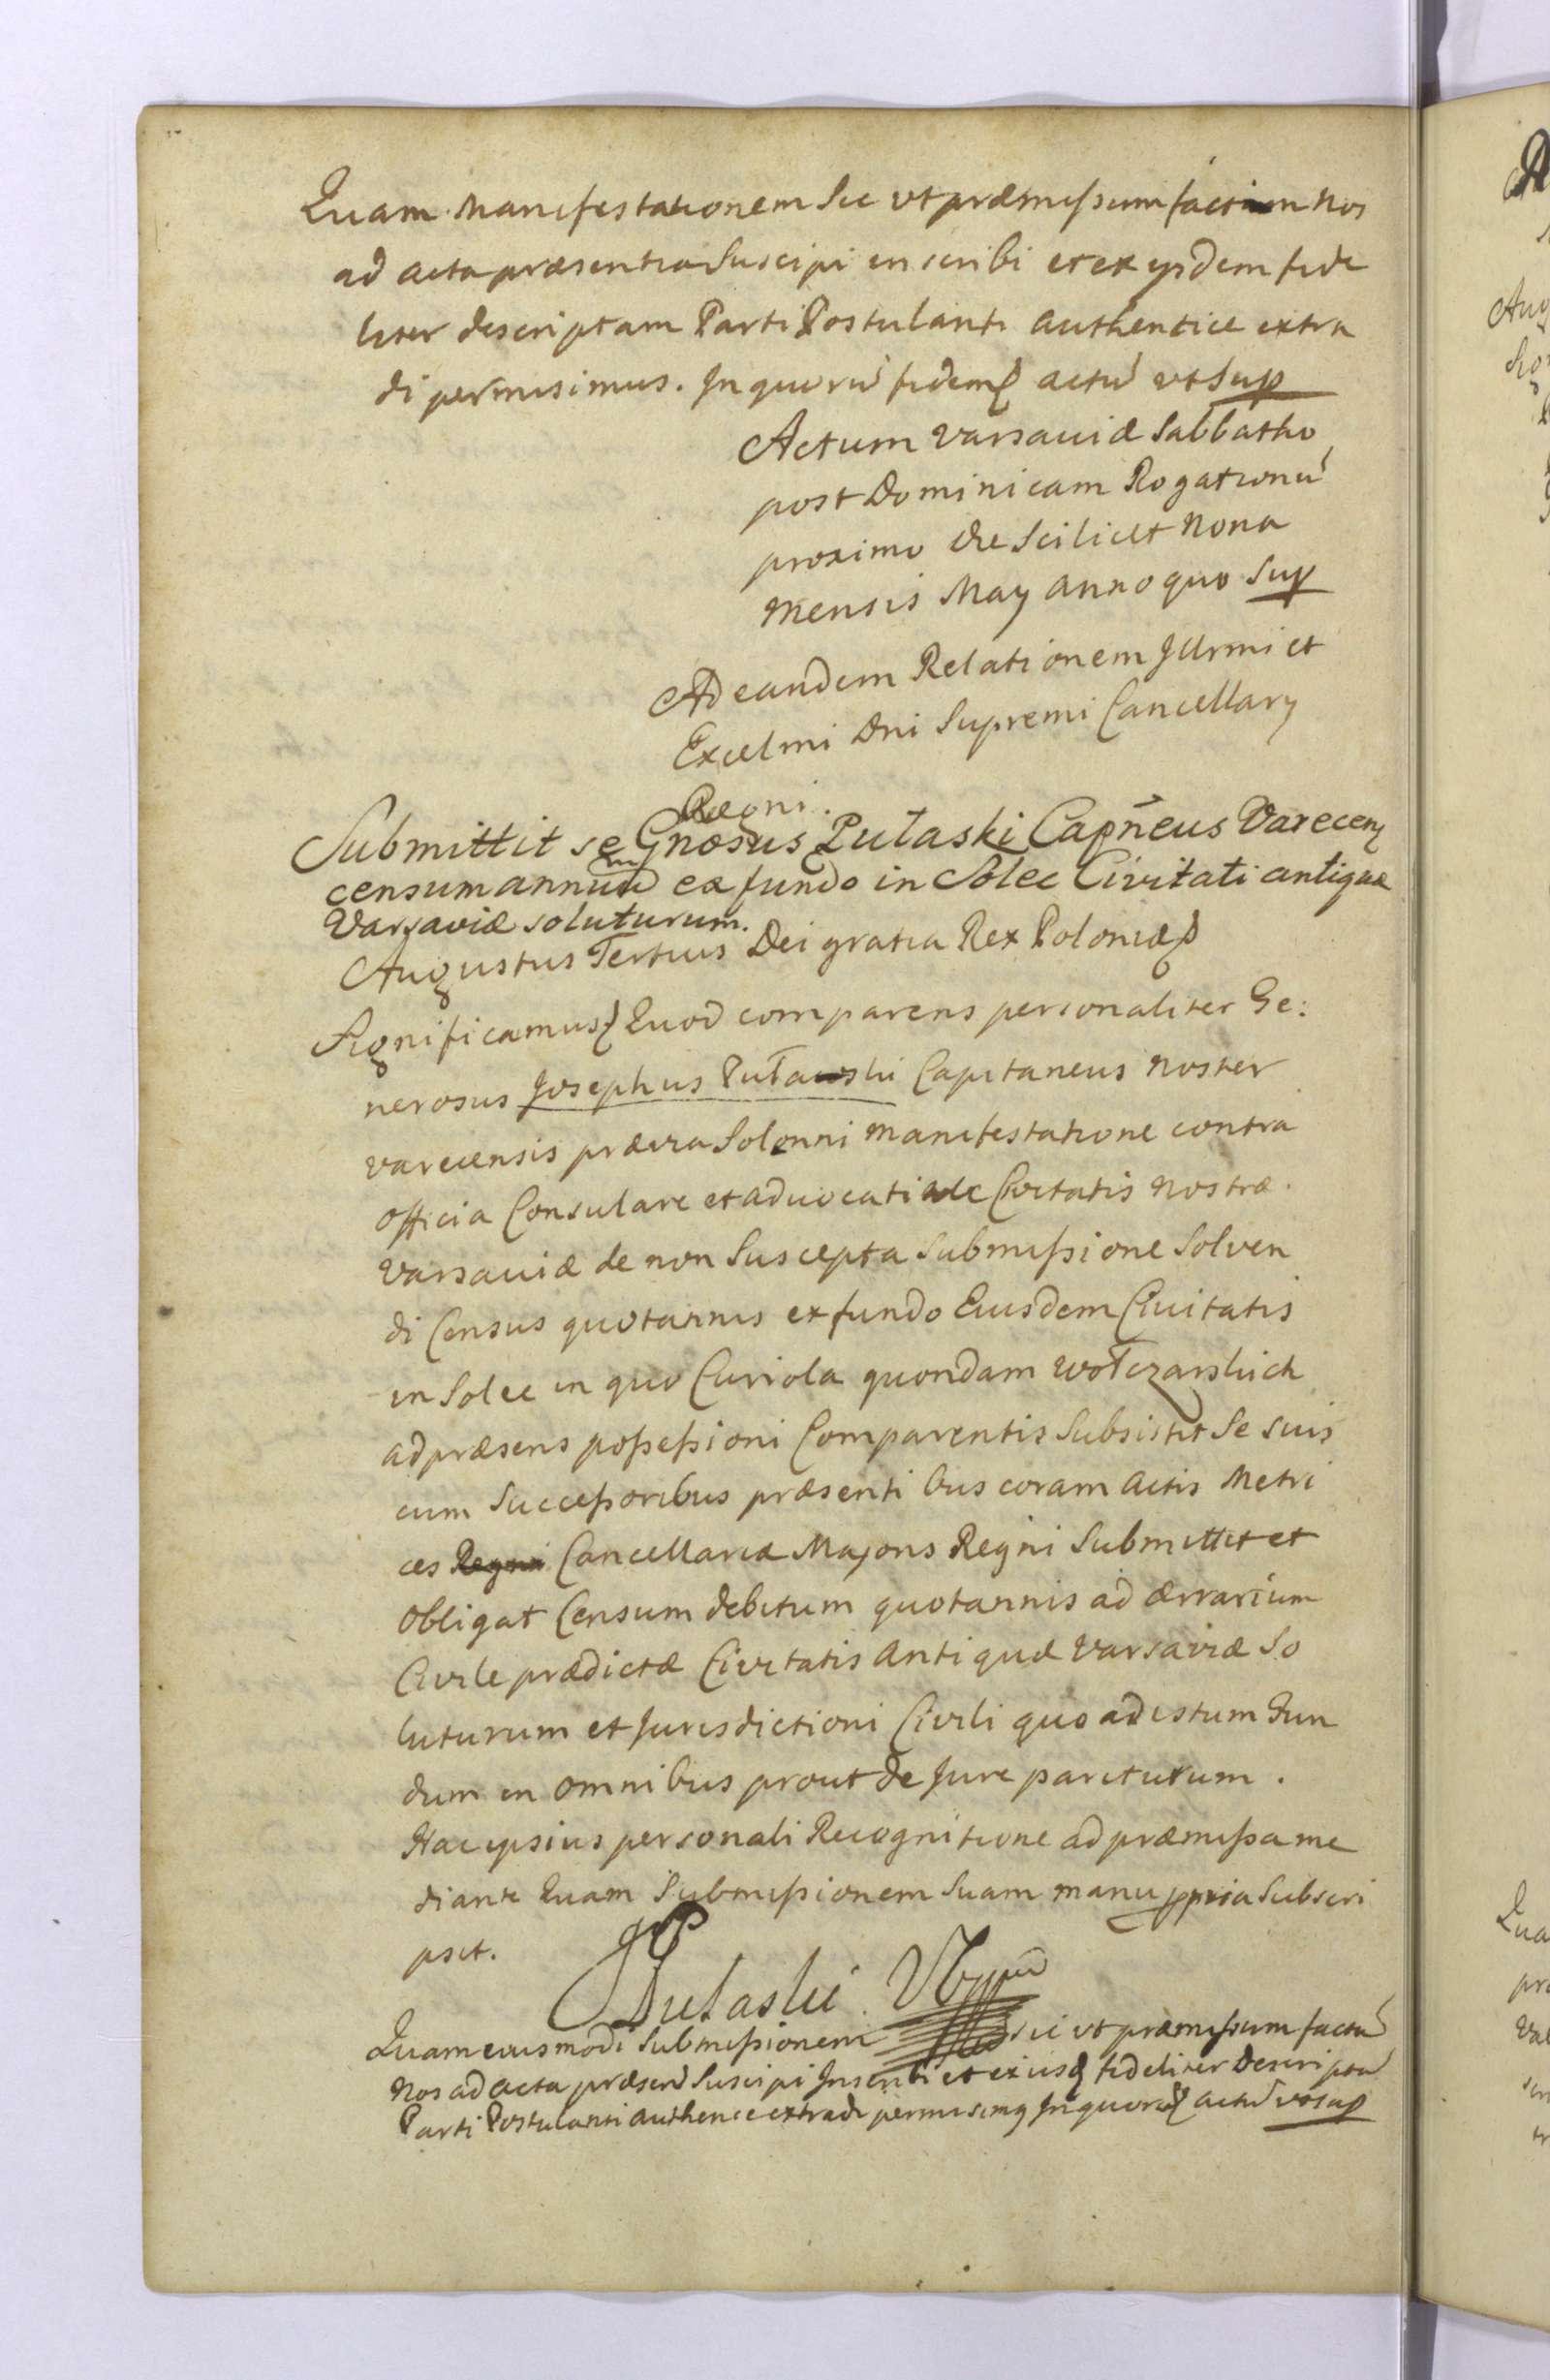 Quam Manifestationem Sic ut præmissum factam nos
ad acta præsentia Suscipi inscribi et ex ijsdem fide
liter descriptam Parti Postulanti authentice extra
di permisimus. In quorū fidem actū ut Sup
Actum Varsaviæ Sabbatho
post Dominicam Rogationū
proximo die Scilicet Nona
Mensis May anno quo Sup
Ad eandem Relationem Illrmi et
Excelmi Dni Supremi Cancellarij
Regni.
Submittit se Gnosus Pułaski Capneus Varecens
censum annuum ex fundo in Solec Civitati antiquæ
Varsaviæ soluturum.
Augustus Tertius Dei gratia Rex Poloniæ
Significamus Quod comparens personaliter Ge:
nerosus Josephus Pułaski Capitaneus noster
varecensis prævia Solenni manifestatione contra
Officia Consulare et advocatiale Civitatis nostræ.
Varsaviæ de non Suscepta Submissione Solven
di Census quotannis ex fundo Eiusdem Civitatis
in Solec in quo Curiola quondam Wołczarskich
ad præsens possessioni Comparentis Subsistit Se suis
cum Successoribus præsentibus coram actis Metri
ces Regni Cancellariæ Majoris Regni Submittit et
Obligat Censum debitum quotannis ad ærrarium
Civile prædictæ Civitatis Antiquæ Varsaviæ So
luturum et Jurisdictioni Civili quo ad istum Fun
dum in omnibus prout de Jure pariturum.
Hac ipsius personali Recognitione ad præmissa me
diante Quam Submissionem Suam manu ppria Subscri
psit.
JPułaski
Quam eiusmodi Submissionem sic ut præmissum factū
Nos ad acta præsen Suscipi Inscribi et ex iisd fideliter Descriptā
Parti Postulanti authenice extradi permisimq In quorū actū ut sup